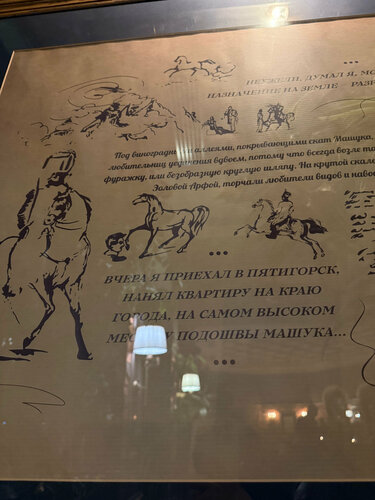 НЕУЖЕЛИ, ДУМАЛ Я, МО
НАЗНАЧЕНИЕ НА ЗЕМЛЕ
Под виноградными аллеями, покрывающими скат Машука,
любительниц уединения вдвоем, потому что всегда возле та
фуражку, или безобразную круглую шляпу. На крутой скале
Эоловой Арфой, торчали любители видов и наво
ВЧЕРА Я ПРИЕХАЛ В ПЯТИГОРСК,
НАНЯЛ КВАРТИРУ НА КРАЮ
ГОРОДА, НА САМОМ ВЫСОКОМ
МЕСТЕ, У ПОДОШВЫ МАШУКА...